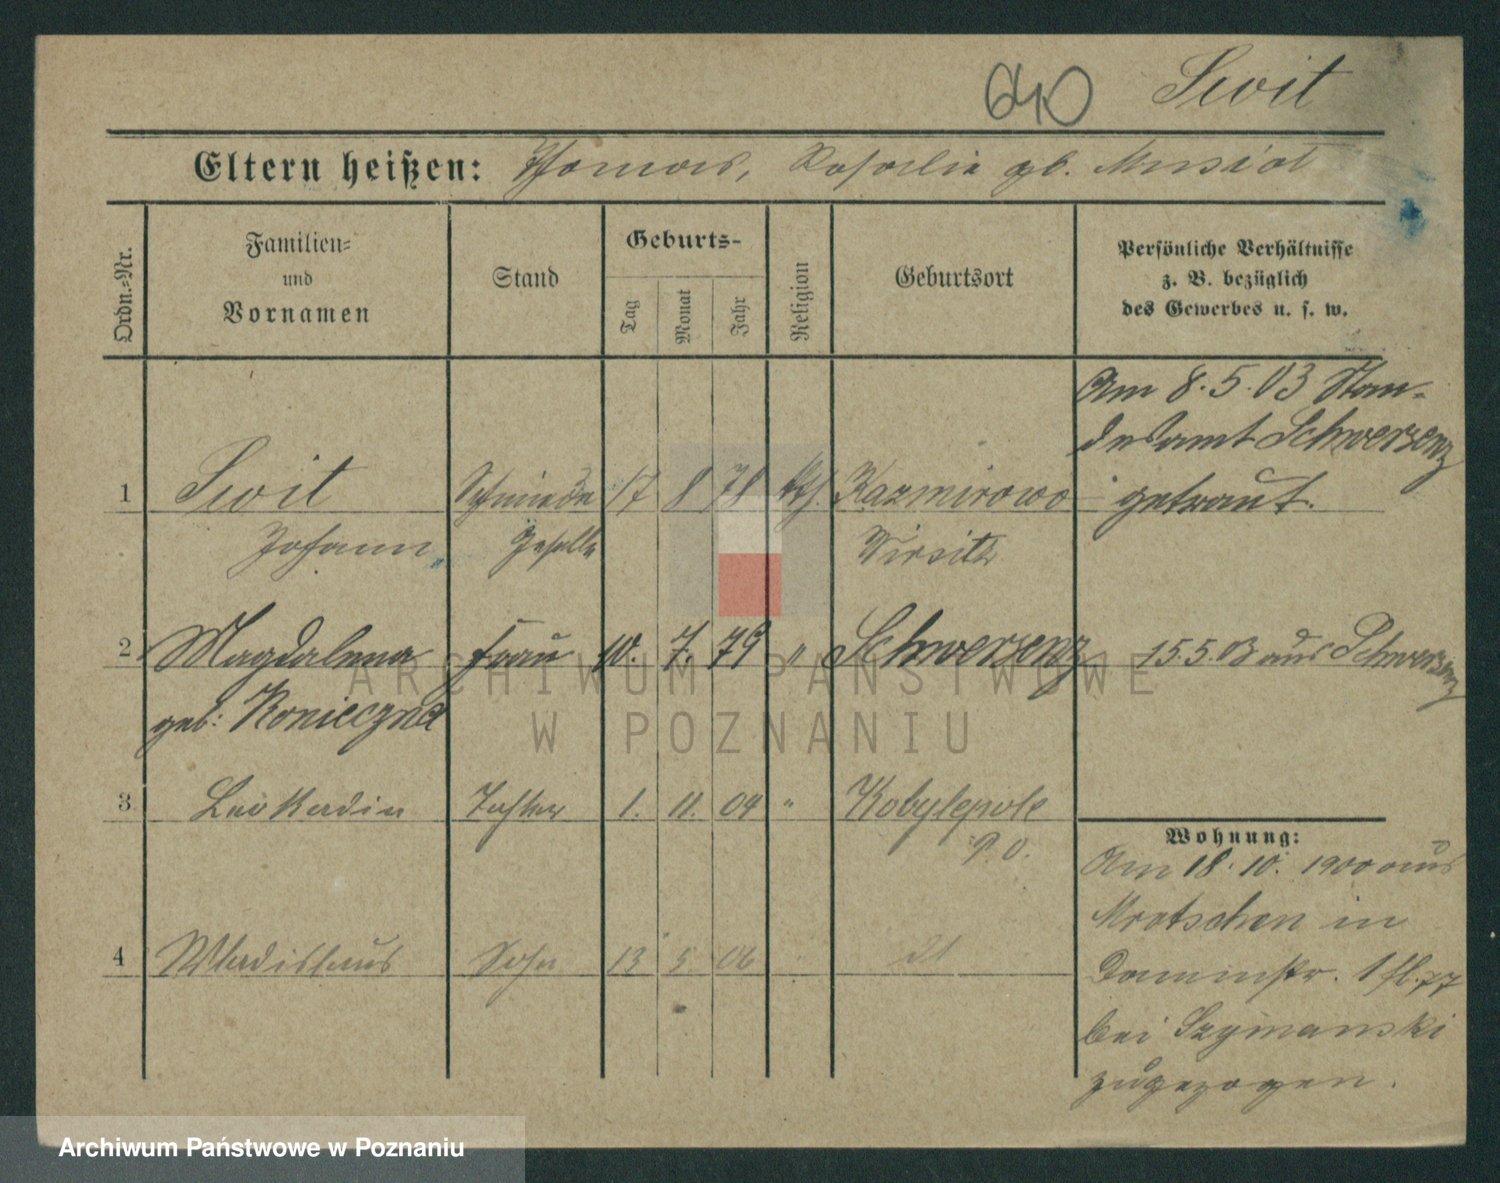 640 Swit
Eltern heißen: Thomas, Rosalie gb. Musiol
Ordn.=Nr.
Familien=
und
Vornamen
Stand
Geburts-
Tag
Monat
Jahr
Religion
Geburtsort
Persönliche Verhältnisse
z. B. bezüglich
des Gewerbes u. s. w.
Am 8.5.03 Stan-
desamt Schwersenz
getraut.
1 Swit Schmiede 17 8 78 kth. Kazmirowo
Johann Geselle Wirsitz
2 Magdalena Frau 10. 7. 79 " Schwersenz 15.5.03 aus Schwersenz
geb: Konieczna
3 Leokadia Tochter 1. 11. 04 " Kobylepole
P. O.
4 Wladislaus Sohn 13 5 06
Wohnung:
Am 18.10. 1900 aus
Mrotschen in
Damm str. 1 fl. 77
bei Szymanski
zugezogen.
ARCHIWUM PAŃSTWOWE
W POZNANIU
Archiwum Państwowe w Poznaniu